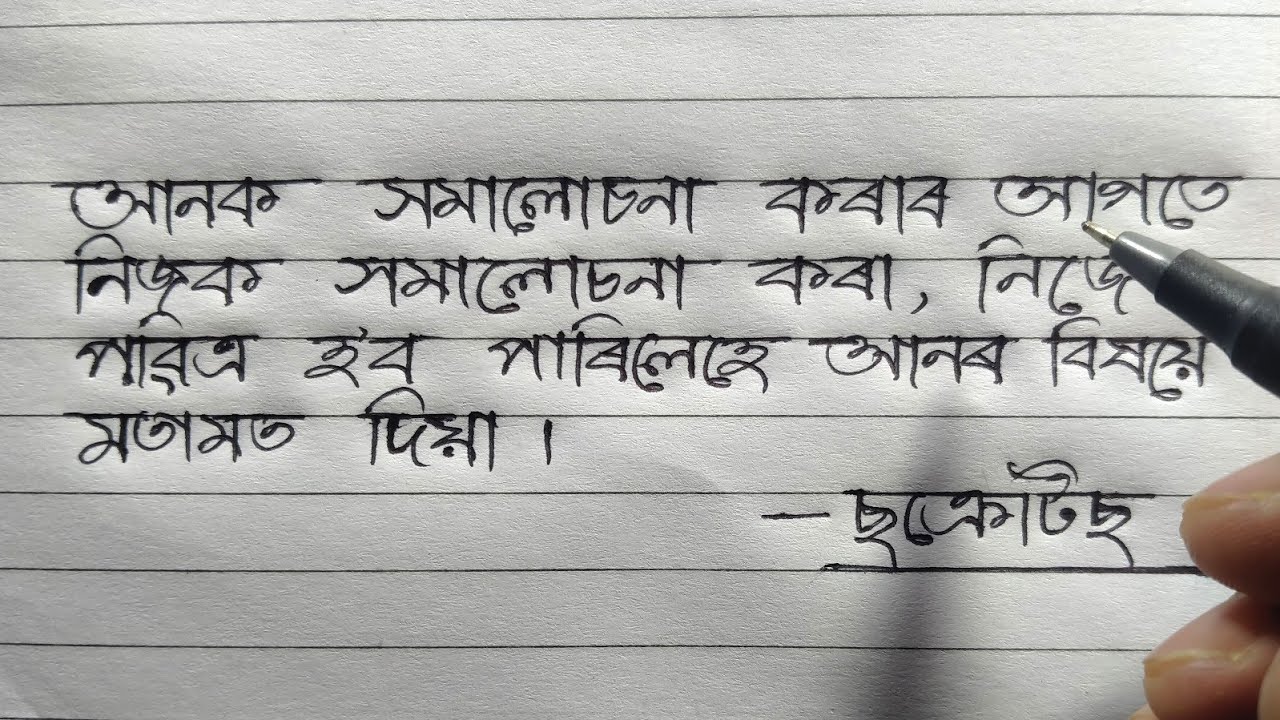 আনক সমালোচনা কৰাৰ আগতে
নিজক সমালোচনা কৰা, নিজে
পবিত্ৰ হ'ব পাৰিলেহে আনৰ বিষয়ে
মতামত দিয়া ।
– ছক্ৰেটিছ